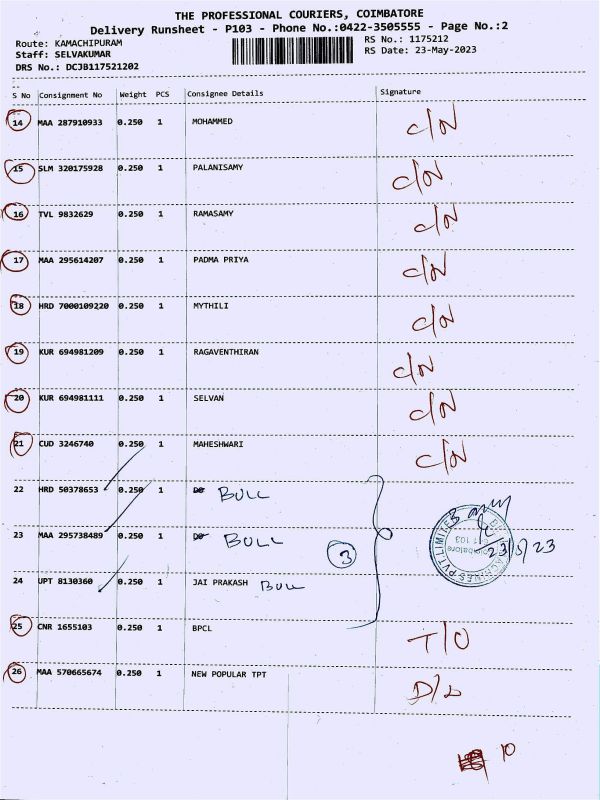 THE PROFESSIONAL COURIERS, COIMBATORE
Delivery Runsheet - P103 - Phone No.:0422-3505555 - Page No.:2
Route: KAMACHIPURAM
RS No.: 1175212
Staff: SELVAKUMAR
RS Date: 23-May-2023
DRS No.: DCJB117521202
S No Consignment No Weight PCS Consignee Details Signature
14 MAA 287910933 0.250 1 MOHAMMED C/N
15 SLM 320175928 0.250 1 PALANISAMY C/N
16 TVL 9832629 0.250 1 RAMASAMY C/N
17 MAA 295614207 0.250 1 PADMA PRIYA C/N
18 HRD 7000109220 0.250 1 MYTHILI C/N
19 KUR 694981209 0.250 1 RAGAVENTHIRAN C/N
20 KUR 694981111 0.250 1 SELVAN C/N
21 CUD 3246740 0.250 1 MAHESHWARI C/N
22 HRD 50378653 0.250 1 BULL
23 MAA 295738489 0.250 1 BULL 3 23/5/23
24 UPT 8130360 0.250 1 JAI PRAKASH BULL
25 CNR 1655103 0.250 1 BPCL T/O
26 MAA 570665674 0.250 1 NEW POPULAR TPT D/L
10